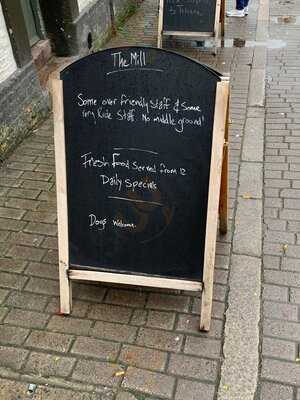 The Mill
Some over friendly Staff & Some
very Rude Staff No middle ground!
Fresh food served from 12
Daily Specials
Dogs welcome.